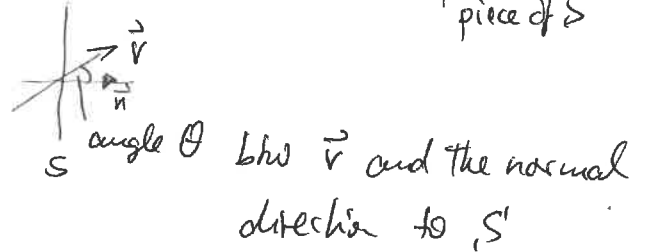 piece of S
v
n
S
angle θ btw v⃗ and the normal
direction to S